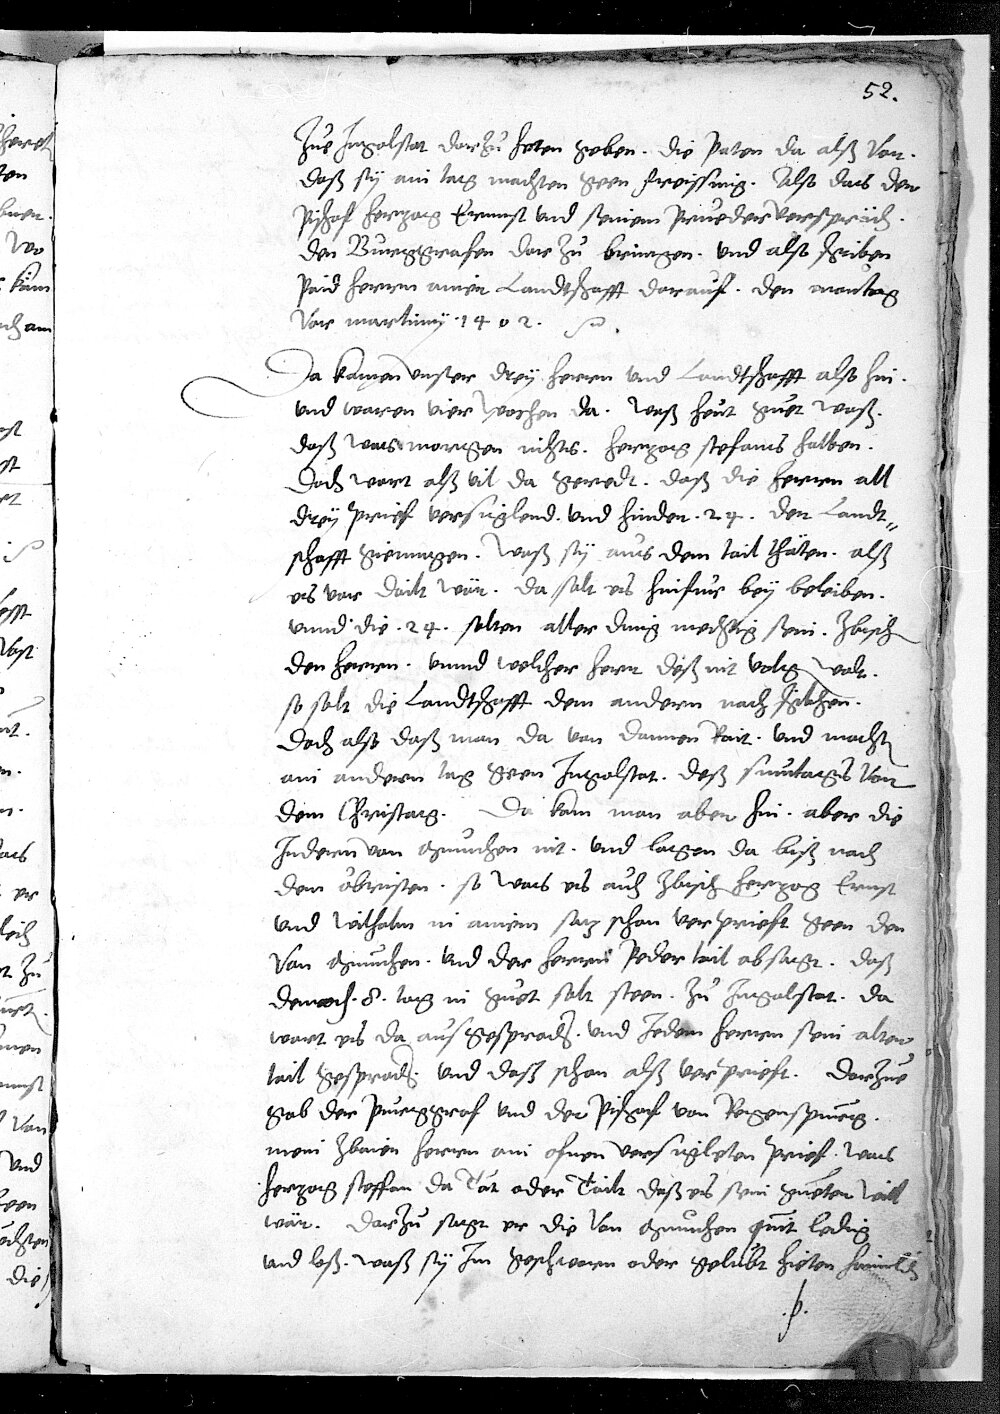 52.
Zue Ingolstat darzu heten geben. die paten da alß von.
daß sy ain tag machten geen freissing. Also das der
Pischof herzog Ernnst und seinem prueder versprach.
den Burggrafen dar zu bringen. und also schriben
paid herrn ainer Landtschafft darauf. den montag
vor martiny 1402.
Da kamen unser drey herrn und Landtschafft also hin.
und waren vier wochen da. Waß heut guet waß.
daß was morgen nichts. herzog stefans halben.
Doch wart alß vil da geredt. daß die herrn all
drey prief versiglend. und hinder. 24. der Landt„
schafft giengen. Waß sy aus dem tail thäten. alß
es vor dailt wär. da solt es hinfur bey beleiben.
unnd die. 24. solten aller ding mechtig sein. Zbisch
den herrn. unnd welcher herr deß nit volg wolt.
so solt die Landtschafft dem andern nach ziechen.
Doch also daß man da von dannen Rait. und macht
ain andern tag geen Ingolstat. deß suntags vor
dem Christag. Da kam man aber hin. aber die
Indern von munchen nit. und lagen da biß nach
dem obristen. so was es auch Zbisch herzog Ernst
und Wilhalm in ainem satz schon verprieft geen den
von munchen. und der herrn peder tail absagt. daß
dennoch. 8. tag in guet solt steen. Zu Ingolstat. da
wart es da ausgesproch. und Jedem herrn sein alter
tail gesproch. und daß schon alß verprieft. Darzue
gab der Purggraf und der Pischof von Regenspurg.
mein Zbaien herrn ain ofnen versigleten prief. was
herzog steffan da Tät oder Tailt daß es sein gueter will
wär. Darzu sagt er die von munchen quit ledig
und loß. waß sy Im geschworn oder gelubt hieten haimlich